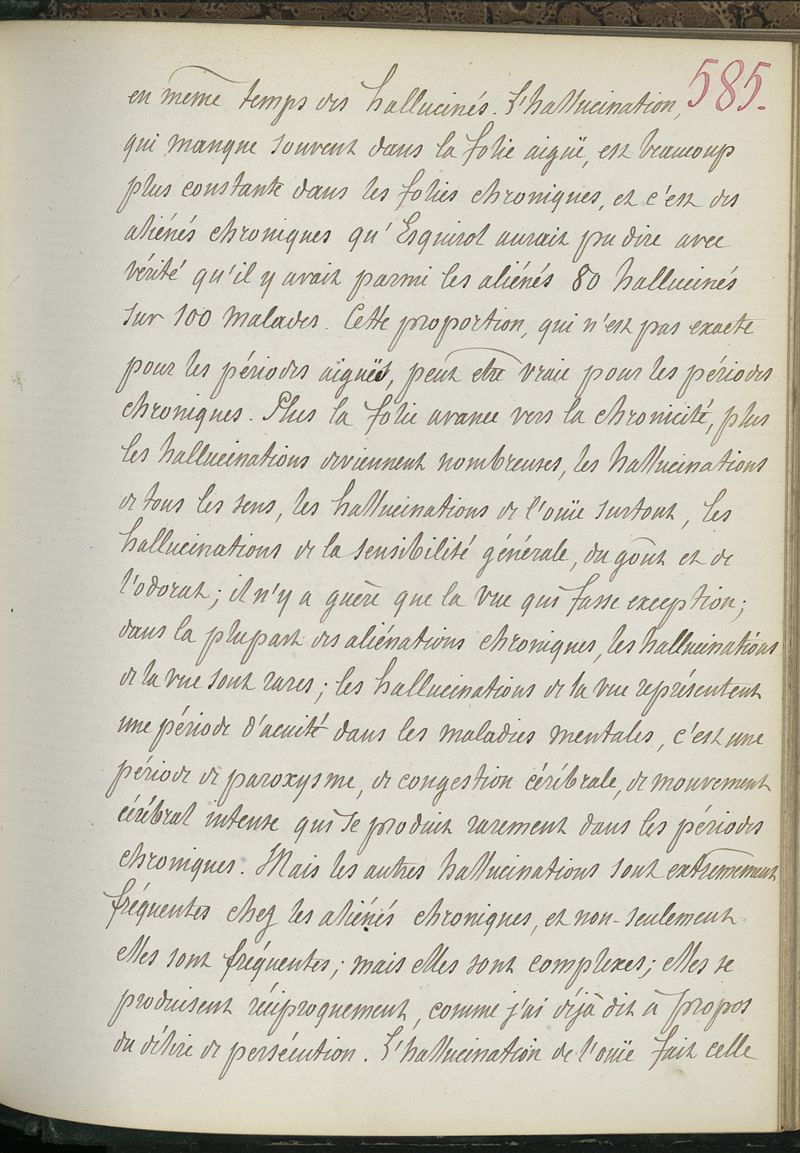 585.
en même temps des hallucinés. L'hallucination,
qui manque souvent dans la folie aiguë, est beaucoup
plus constante dans les folies chroniques, et c'est des
aliénés chroniques qu'Esquirol aurait pu dire avec
vérité qu'il y avait parmi les aliénés 80 hallucinés
sur 100 malades. Cette proportion, qui n'est pas exacte
pour les périodes aiguës, peut être vraie pour les périodes
chroniques. Plus la folie avance vers la chronicité, plus
les hallucinations deviennent nombreuses, les hallucinations
de tous les sens, les hallucinations de l'ouïe surtout, les
hallucinations de la sensibilité générale, du goût et de
l'odorat; il n'y a guère que la vue qui fasse exception;
dans la plupart des aliénations chroniques, les hallucinations
de la vue sont rares; les hallucinations de la vue représentent
une période d'acuité dans les maladies mentales, c'est une
période de paroxysme, de congestion cérébrale, de mouvement
cérébral intense qui se produit rarement dans les périodes
chroniques. Mais les autres hallucinations sont extrêmement
fréquentes chez les aliénés chroniques, et non-seulement
elles sont fréquentes; mais elles sont complexes; elles se
produisent réciproquement, comme j'ai déjà dit à propos
du délire de persécution. L'hallucination de l'ouïe fait celle